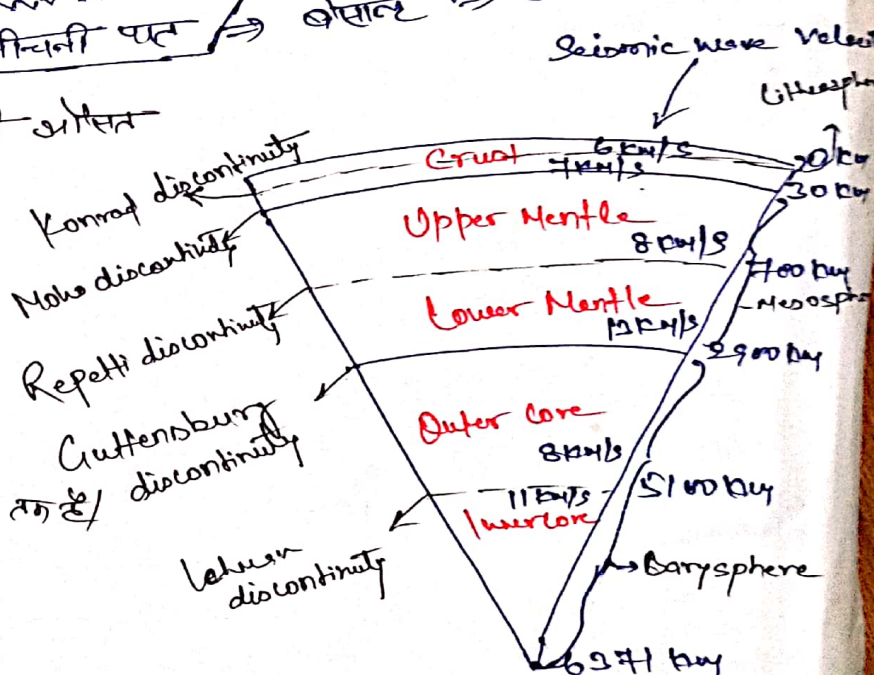 चिनी परत ⇒ बेसाल्ट ⇒
औसत
Seismic wave Veloci
Lithosph
Konrad discontinuity
Crust
6 KM/S
7 KM/S
30 KM
Moho discontinuity
Upper Mentle
8 KM/S
700 KM
Mesosph
Repetti discontinuity
Lower Mentle
2900 KM
Guttensburg
discontinuity
तक है/
Outer core
8 KM/S
11 KM/S
5100 KM
Inner core
discontinuity
Barysphere
6371 KM